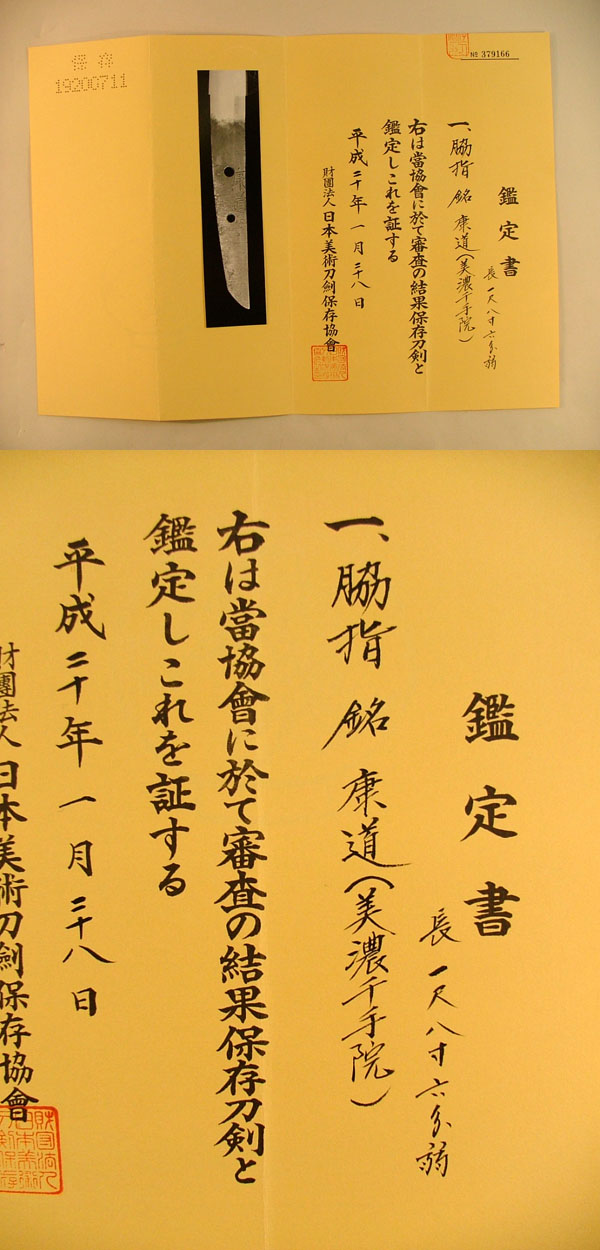 № 379166
鑑定書
長 一尺八寸六分弱
一、脇指 銘 康道(美濃千手院)
右は當協會に於て審査の結果保存刀剣と
鑑定しこれを証する
平成二十年一月二十八日
財團法人 日本美術刀劍保存協會
保存
19200711
鑑定書
長 一尺八寸六分弱
一、脇指 銘 康道(美濃千手院)
右は當協會に於て審査の結果保存刀剣と
鑑定しこれを証する
平成二十年一月二十八日
財團法人 日本美術刀劍保存協會